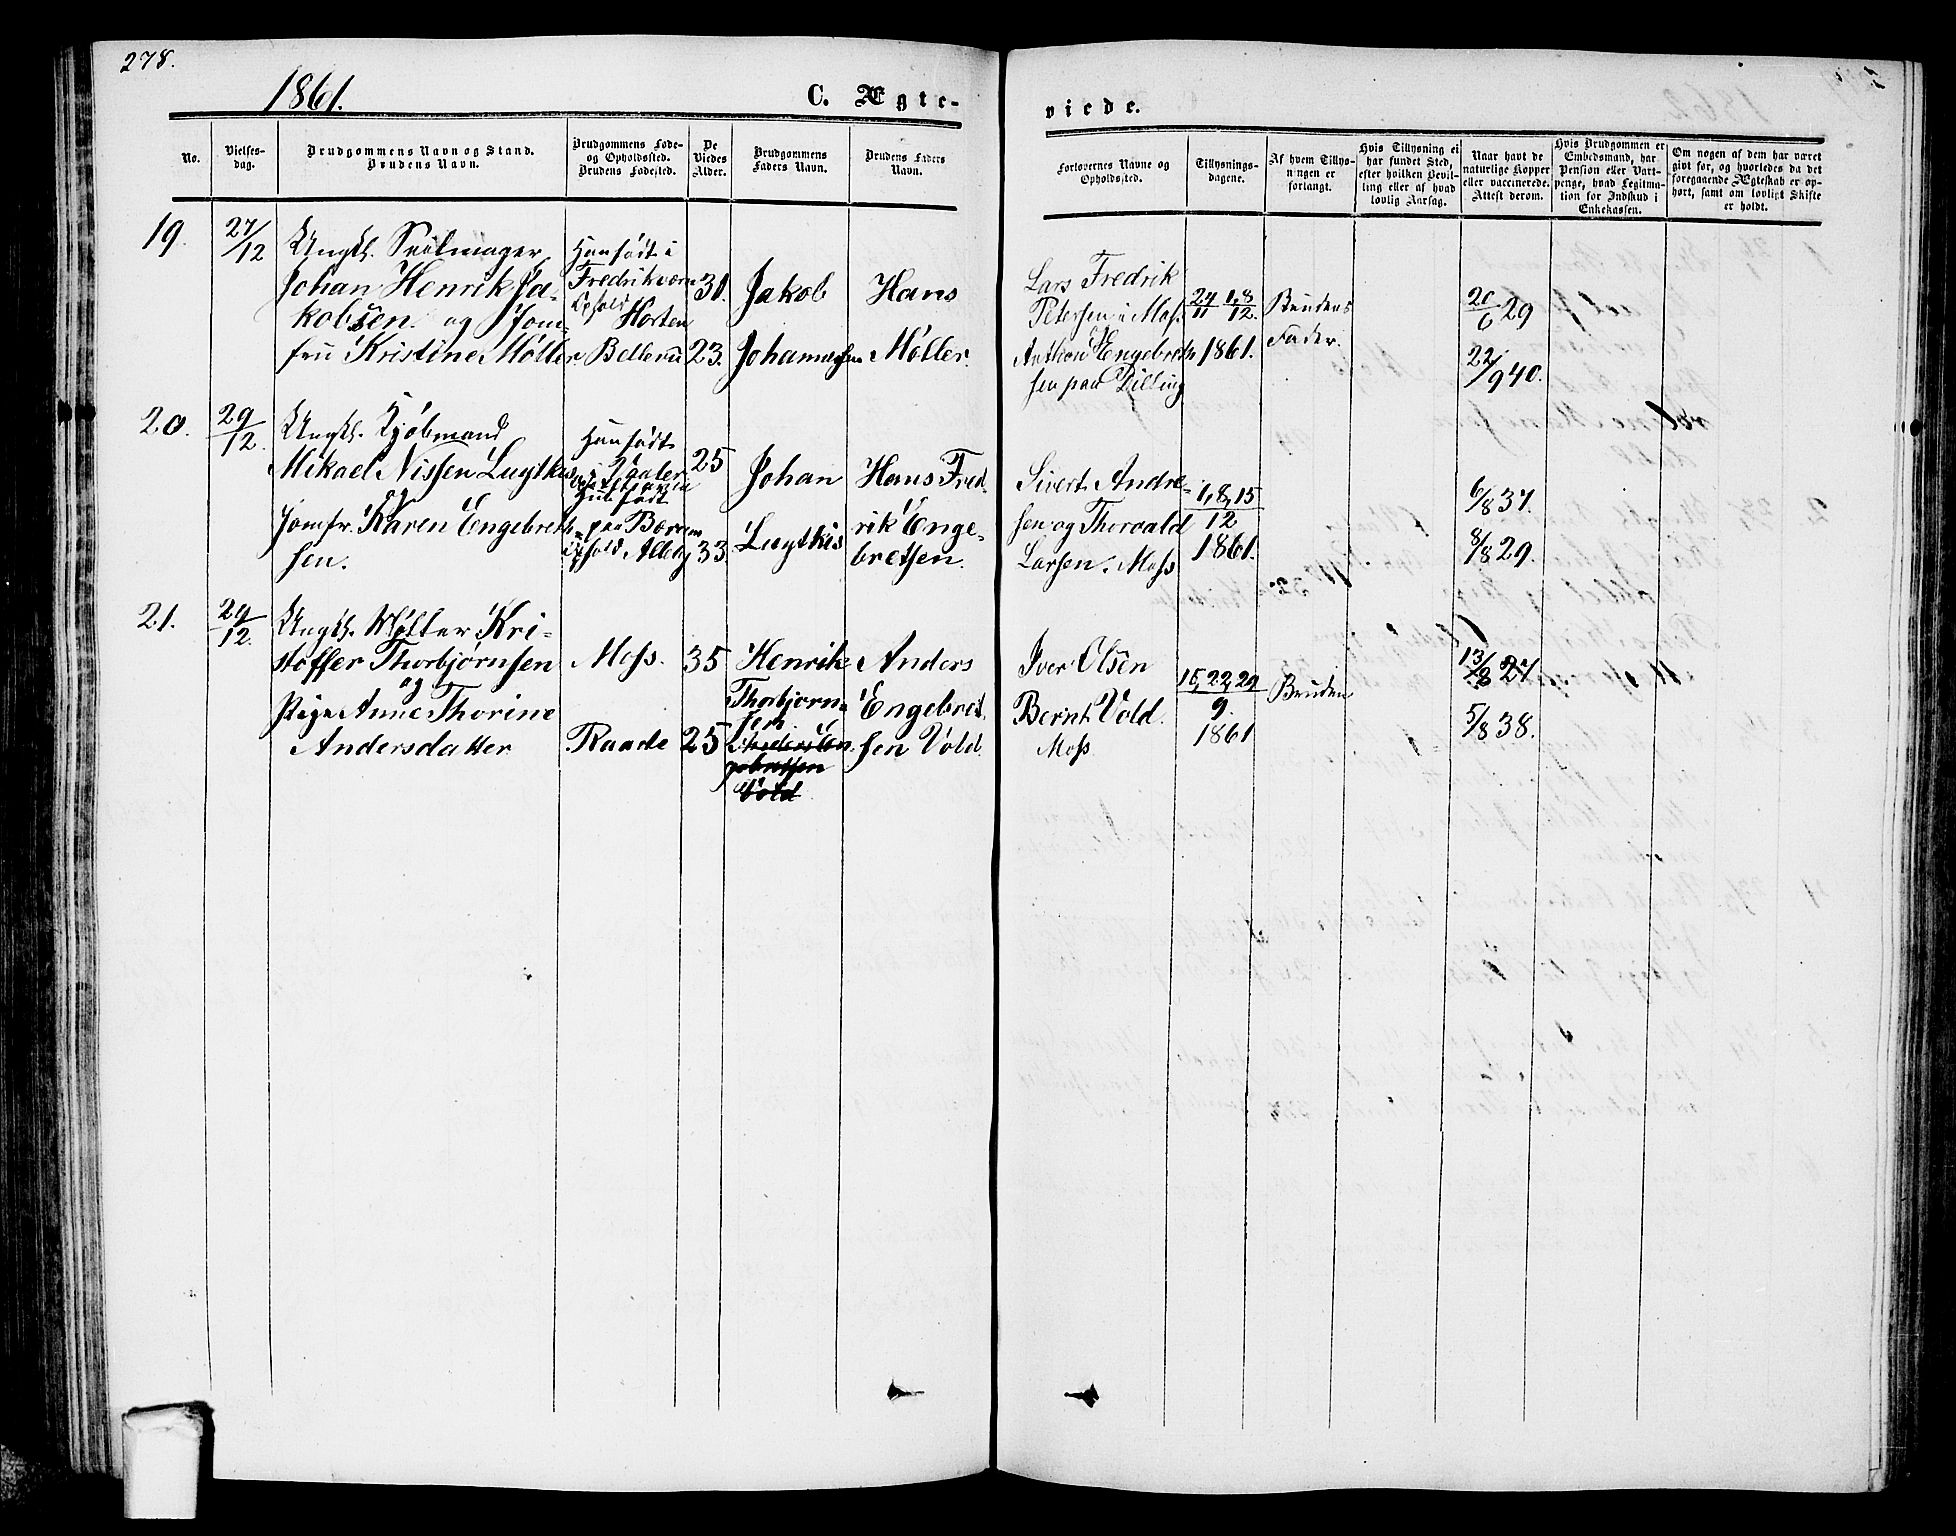 278.
1861.
C. Ægte-
viede.
No.
Vielses-
dag.
Brudgommens Navn og Stand.
Brudens Navn.
Brudgommens Føde-
og Opholdssted.
Brudens Fødested.
De
Viedes
Alder.
Brudgommens
Faders Navn.
Brudens Faders
Navn.
Forlovernes Navne og
Opholdssted.
Tillysnings-
dagene.
Af hvem Tillys-
ningen er
forlangt.
Hvis Tillysning ei
har fundet Sted,
efter hvilken Bevil-
ling eller af hvad
lovlig Aarsag.
Naar havt de
naturlige Kopper
eller vaccinerede.
Attest derom.
Hvis Brudgommen er
Embedsmand, har
Pension eller Vart-
penge, hvad Legitima-
tion for Indskud i
Enkekassen.
Om nogen af dem har været
gift før, og hvorledes da det
foregaaende Ægteskab er op-
hørt, samt om lovligt Skifte
er holdt.
19.
27/12
Ungk. Seilmager
Johan Henrik Ja-
kobsen og Jom-
fru Kristine Møller.
Han født i
Fredriksværn
Ophold
Horten
Bellevu
30.
23.
Jakob
Johannesen
Hans
Møller.
Lars Fredrik
Petersen i Moss
Anthon Engebret-
sen paa Dilling
24/11 1,8/12.
1861.
Brudens
Fader.
20/6 29
22/9 40.
20.
29/12.
Ungk. Kjøbmand
Mikael Nissen Luytkis
og
Jomfr. Karen Engebret-
sen.
Han født
i Vaaler
Hun født
paa
Ophold Alby
25
33.
Johan
Luytkis
Hans Fred-
rik Enge-
bretsen.
Sivert Andre-
sen og Thorvald
Larsen. Moss
1,8,15
12
1861.
6/8 37.
8/8 29.
21.
29/12.
Ungk. Møller Kri-
stoffer Thorbjørnsen
og
Pige Anne Thorine
Andersdatter
Moss.
Raade
35
25
Henrik
Thorbjørn-
sen
Anders En-
gebretsen
Vold
Anders
Engebret-
sen Vold.
Iver Olsen
Bernt Vold.
Moss
15,22,29
9.
1861
Bruden
13/8 27
5/8 38.